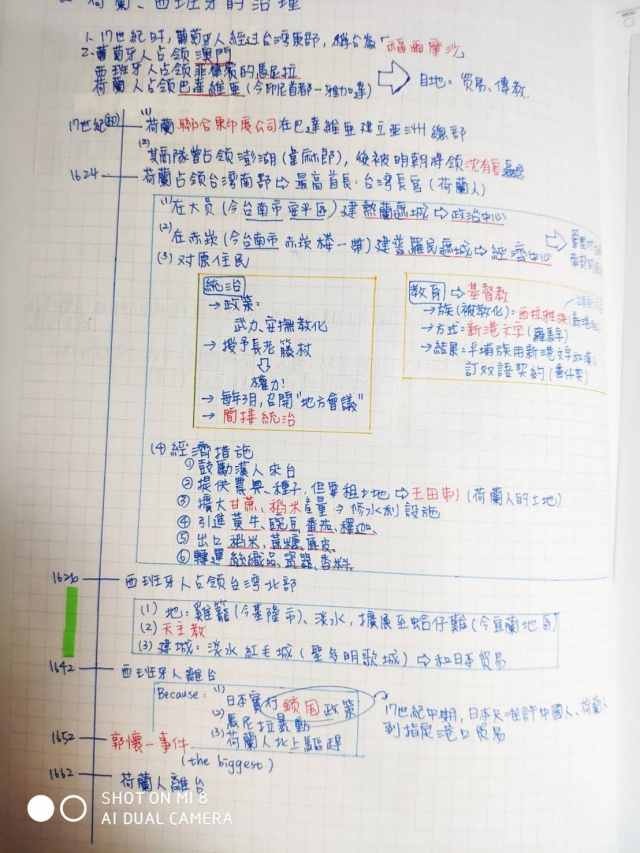 荷蘭、西班牙的治理
1. 17世紀時,葡萄牙人經过台湾東部,稱台為「福爾摩沙
2. 葡萄牙人占領澳門
西班牙人占領菲律賓的馬尼拉
荷蘭人占領巴達維亞(今印尼首都-雅加達)
目地:貿易、傳教
17世紀初
(1) 荷蘭聯合東印度公司在巴達維亞建立亞洲總部
(2) 其商隊曾占領澎湖(韋麻郎),後被明朝將領沈有容
1624 荷蘭占領台湾南部→最高首長:台湾長官(荷蘭人)
(1) 在大員(今台南市安平區)建熱蘭遮城→政治中心
(2) 在赤崁(今台南市赤崁樓一帶)建普羅民遮城→經濟中心
(3) 對原住民
統治
→政策:
武力、安撫教化
→授予長老籐杖
權力!
→每年3月,召開"地方會議"
→間接統治
教育→基督教
→族(被教化):西拉雅族
→方式:新港文字(羅馬字)
→結果:平埔族用新港文字
訂双語契約(番仔契)
(4) 經濟措施
①鼓勵漢人來台
②提供農具、種子,但要租土地→王田制(荷蘭人的土地)
③擴大甘蔗、稻米產量→修水利設施
④引進黃牛、豌豆、番茄、釋迦
⑤出口稻米、蔗糖、鹿皮
⑥轉運絲織品、瓷器、香料
1626 西班牙人占領台湾北部
(1) 地:雞籠(今基隆市)、淡水,擴展至蛤仔難(今宜蘭地區)
(2) 天主教
(3) 建城:淡水紅毛城(聖多明歌城)→和日本貿易
1642 西班牙人離台
Because:(1) 日本實行鎖国政策
(2) 馬尼拉暴動
(3) 荷蘭人北上驅趕
17世紀中期,日本只准許中國人、荷蘭人
到指定港口貿易
1652 郭懷一事件
(the biggest)
1662 荷蘭人離台
SHOT ON MI 8
AI DUAL CAMERA